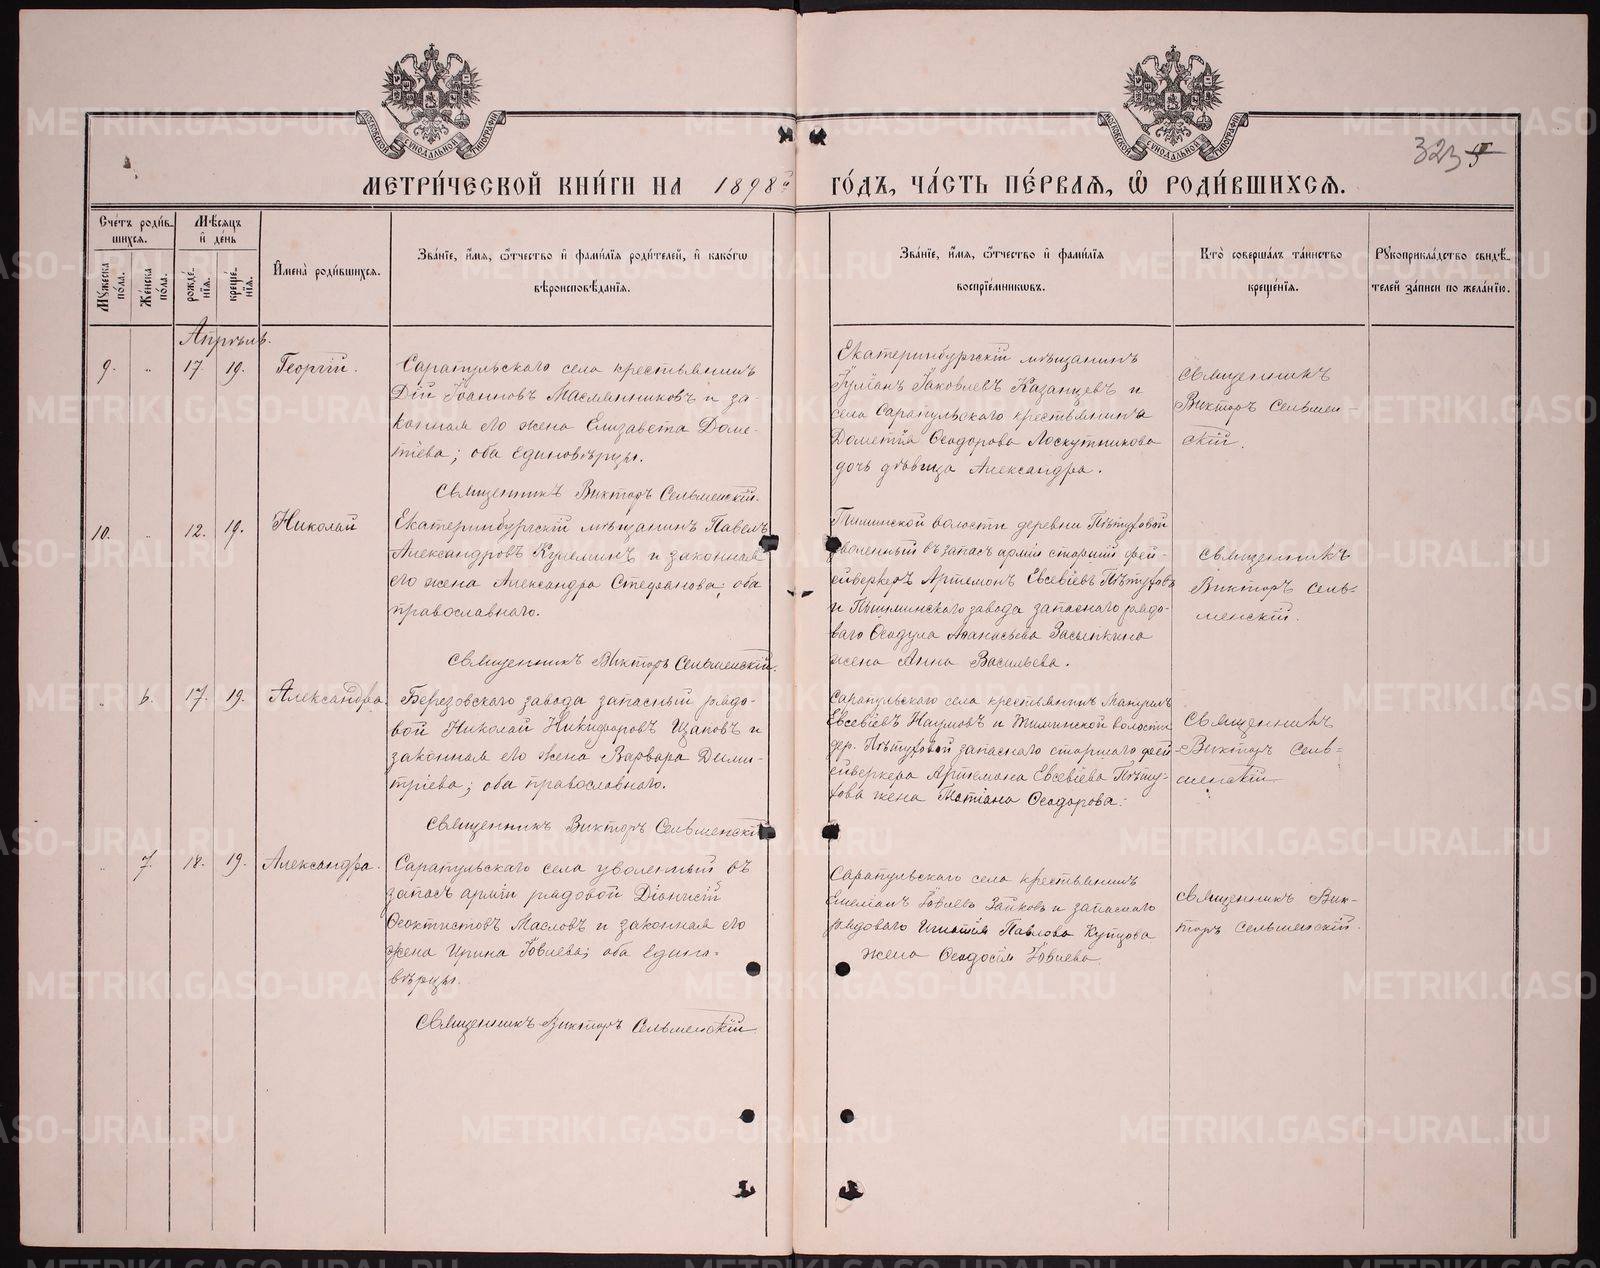 МЕТРИ́ЧЕСКОЙ КНИ́ГИ НА 1898 го́
ГО́ДЪ, ЧА́СТЬ ПЕ́РВАѦ, Ѡ҆ РОДИ́ВШИХСѦ.
323
Сче́тъ роди́в-
шихся.
Мѣсѧцъ
и҆ де́нь
Мꙋжеска по́ла.
Же́нска по́ла.
рожде́нїѧ.
креще́нїѧ.
И҆мена̀ роди́вшихсѧ.
Зва́нїе, и҆́мѧ, ѻ҆́тчество и҆ фами́лїѧ роди́телей, и҆ како́гѡ
вѣроисповѣ́данїѧ.
Зва́нїе, и҆́мѧ, ѻ҆́тчество и҆ фами́лїѧ
воспрїе́мникѡвъ.
Кто̀ соверша́лъ та́инство
креще́нїѧ.
Рꙋкоприкла́дство свидѣ́-
телей за́писи по жела́нїю.
Апрѣль.
9. „ 17. 19. Георгій.
Сарапульскаго села крестьянинъ
Дій Іоанновъ Масленниковъ и за-
конная его жена Елизавета Доме-
тіева; оба единовѣрцы.
Священникъ Викторъ Сельменскій.
Екатеринбургскій мѣщанинъ
Іуліанъ Іаковлевъ Казанцевъ и
села Сарапульскаго крестьянина
Дометія Ѳеодорова Лоскутникова
дочь дѣвица Александра.
Священникъ
Викторъ Сельмен-
скій.
10. „ 12. 19. Николай
Екатеринбургскій мѣщанинъ Павелъ
Александровъ Кушминъ и законная
его жена Александра Стефанова; оба
православнаго.
Священникъ Викторъ Сельменскій.
волости деревни Пѣтуховой
уволенный въ запасъ арміи старшій фей-
ейверкеръ Артемонъ Евсевіевъ Пѣтуховъ
и Пышминскаго завода запаснаго рядо-
ваго Ѳеодула Аѳанасьева Засыпкина
жена Анна Васильева.
Священникъ
Викторъ Сель-
менскій.
„ 6. 17. 19. Александра.
Березовскаго завода запасный рядо-
вой Николай Никифоровъ и
законная его жена Варвара Дими-
тріева; оба православнаго.
Священникъ Викторъ Сельменскій
Сарапульскаго села крестьянинъ
Евсевіевъ Наумовъ и волости
дер. Пѣтуховой запаснаго старшаго фей-
ейверкера Артемона Евсевіева Пѣту-
хова жена Татіана Ѳеодорова.
Священникъ
Викторъ Сель-
менскій
„ 7. 18. 19. Александра.
Сарапульскаго села уволенный въ
запасъ арміи рядовой Діонисій
Ѳеоктистовъ Масловъ и законная его
жена Ирина Іовлева; оба едино-
вѣрцы.
Священникъ Викторъ Сельменскій
Сарапульскаго села крестьянинъ
Емеліанъ Іовлевъ Зайковъ и запаснаго
рядоваго Игнатія Павлова Купцова
жена Ѳеодосія Іовлева
Священникъ Вик-
торъ Сельменскій.
METRIKI.GASO-URAL.RU